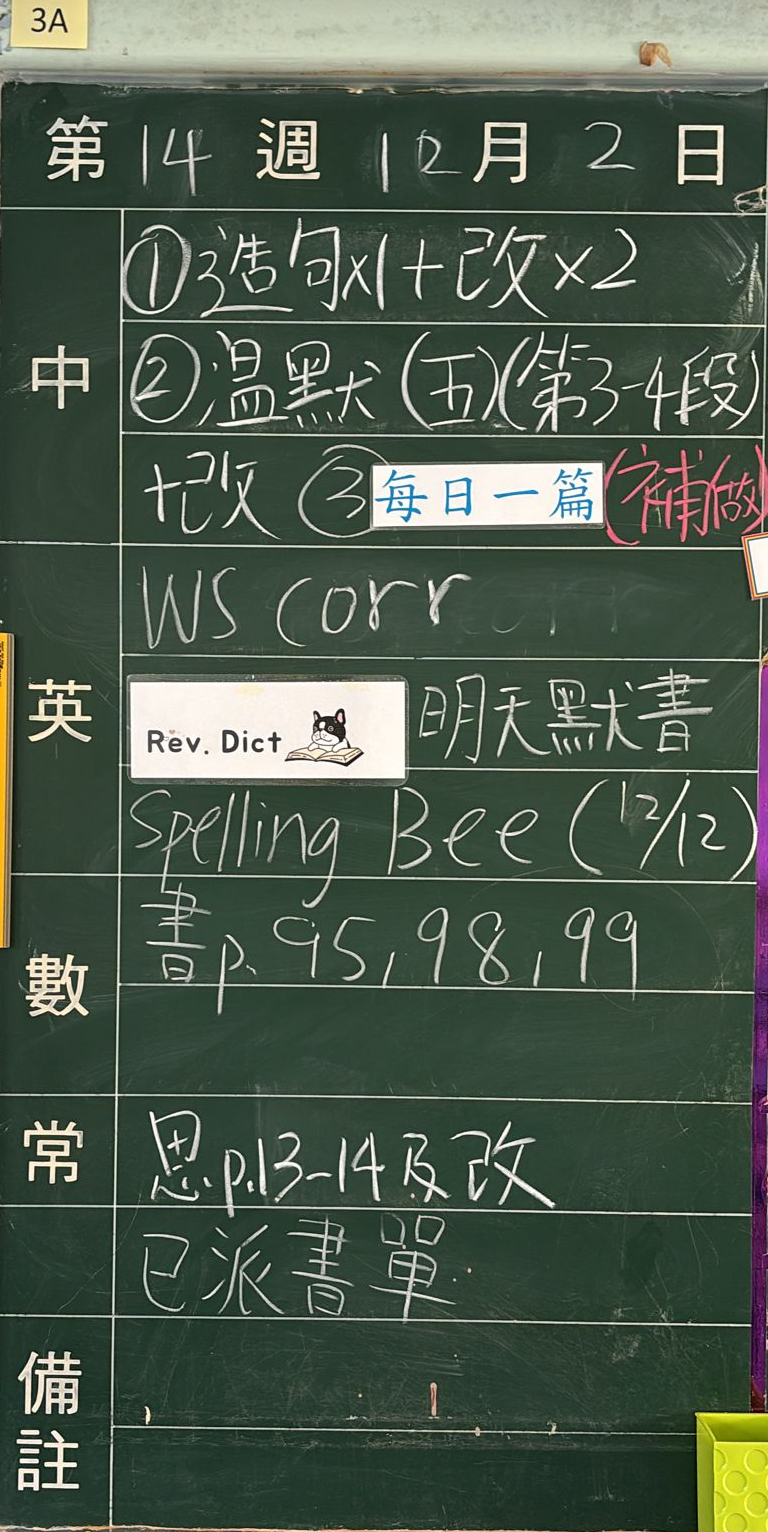 3A
第 14 週 12 月 2 日
中
①造句x1+改x2
②溫默(五)(第3-4段)
+改 ③每日一篇(補做)
英
WS corr
Rev. Dict 明天默書
Spelling Bee (12/12)
數
書p.95,98,99
常
思p.13-14及改
已派書單
備註